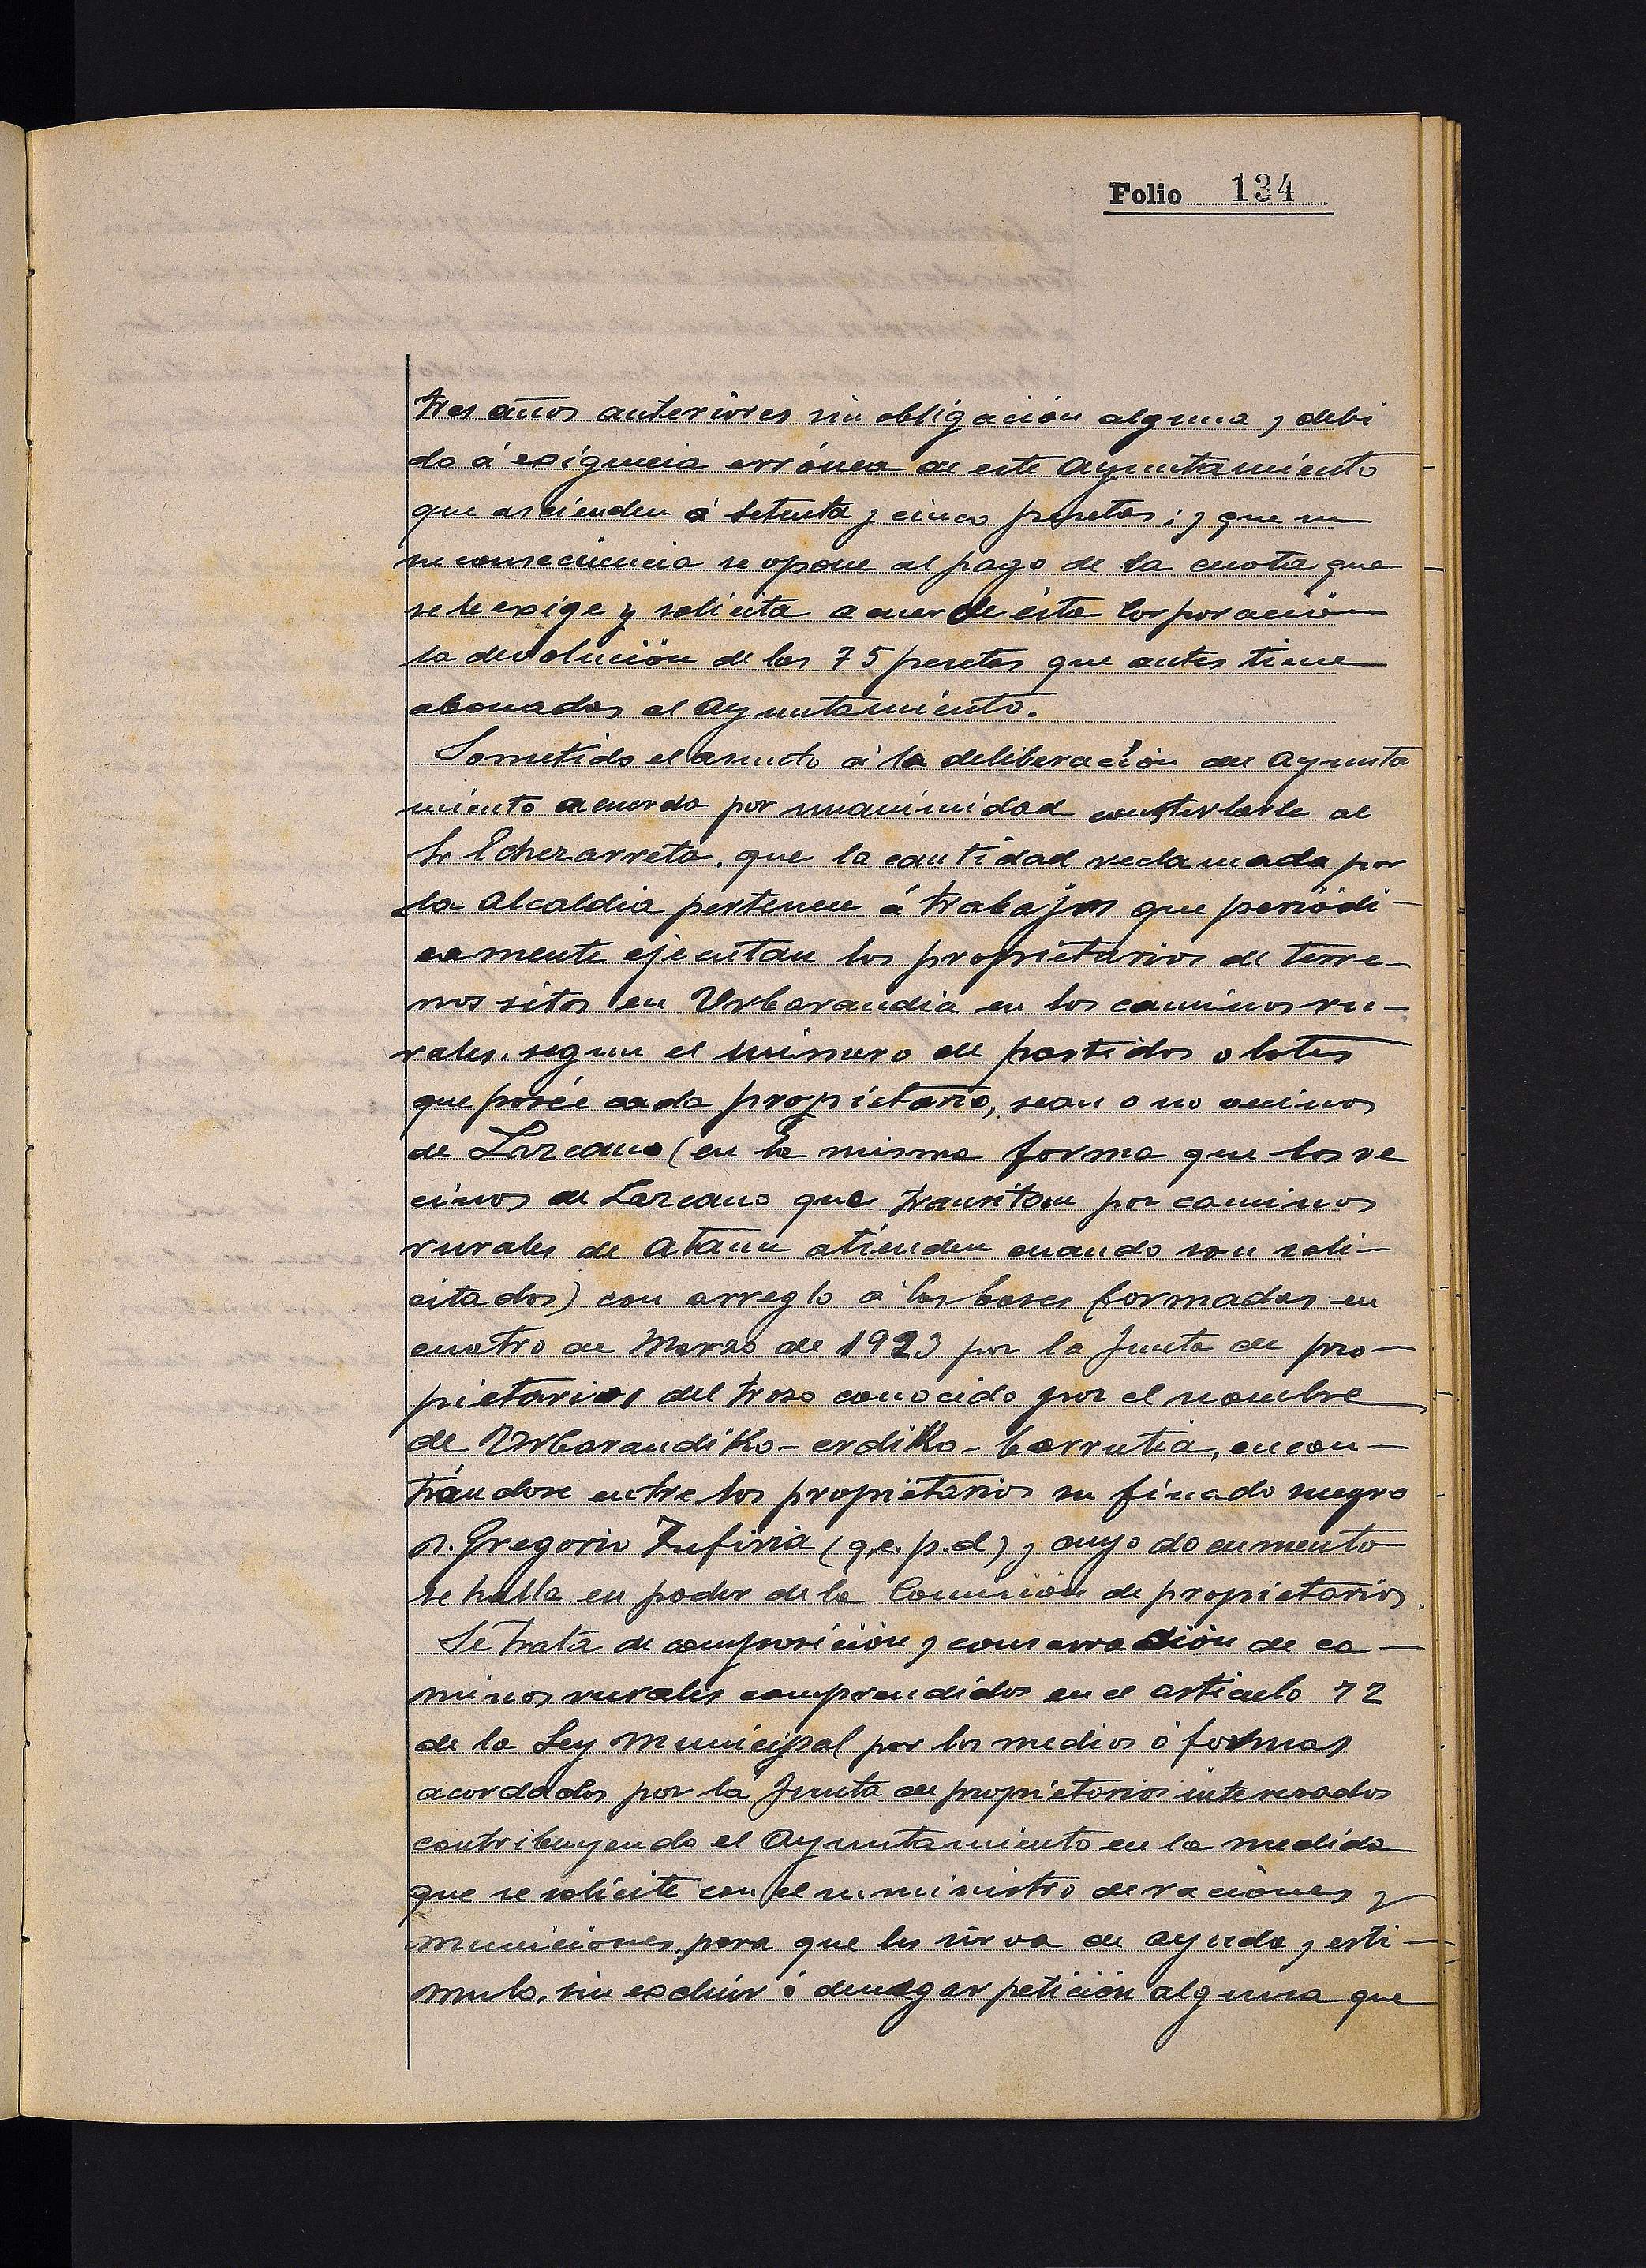 Folio 134
tres años anteriores sin obligación alguna y debi
do á exigencia errónea de este Ayuntamiento
que ascienden á setenta y cinco pesetas; y que en
su consecuencia se opone al pago de la cuota que
se le exige y solicita acuerde ésta Corporación
la devolución de las 75 pesetas que antes tiene
abonadas al Ayuntamiento.
Sometido el asunto á la deliberación del Ayunta
miento acuerda por unanimidad contestarle al
Sr Echezarreta, que la cantidad reclamada por
la Alcaldia pertenece á trabajos que periódi-
camente ejecutan los proprietarios de terre-
nos sitos en Urbarandia en los caminos ru-
rales, segun el número de partidos o lotes
que posée cada propietario, sean o no vecinos
de Lazcano (en la misma forma que los ve
cinos de Lazcano que transitan por caminos
rurales de Ataun atienden cuando son soli-
citados) con arreglo á las bases formadas en
cuatro de Marzo de 1923 por la Junta de pro-
pietarios del trozo conocido por el nombre
de Urbarandiko-erdiko-barrutia, encon-
trándose entre los propietarios su finado suegro
D. Gregorio Zufiria (q.e.p.d) y cuyo documento
se halla en poder de la Comisión de propietarios.
Se trata de composición y conservación de ca-
minos rurales comprendidos en el articulo 72
de la Ley Municipal por los medios ó formas
acordados por la Junta de propietarios interesados
contribuyendo el Ayuntamiento en la medida
que se solicite con el suministro de raciones y
municiones, para que les sirva de ayuda y esti-
mulo, sin excluir ó denegar petición alguna que